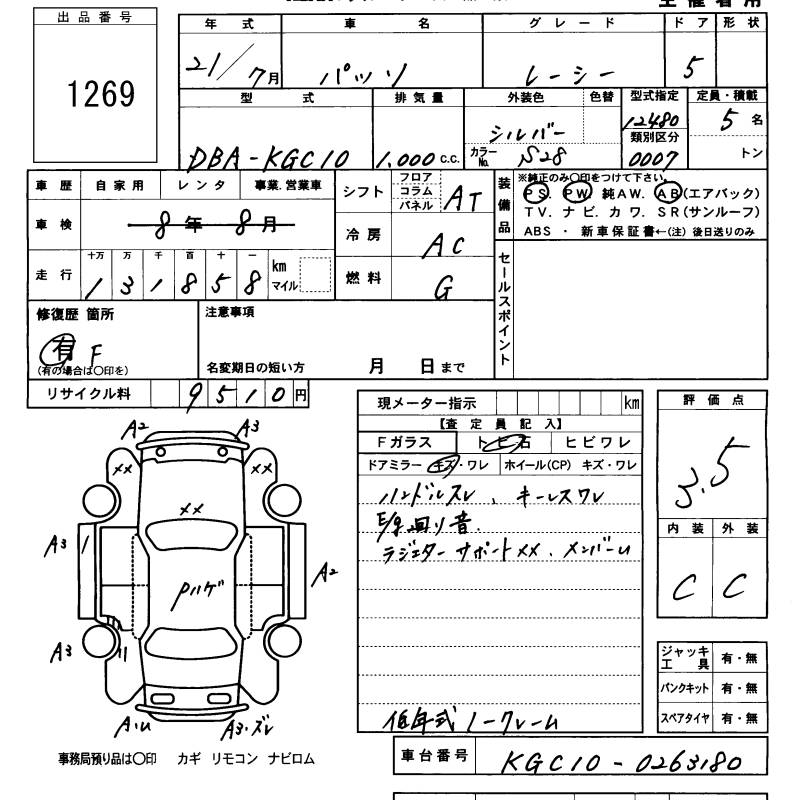 出品番号
1269
年式 車名 グレード ドア 形状
21/7月 パッソ レーシー 5
型式 排気量 外装色 色替 型式指定 定員・積載
DBA-KGC10 1,000 C.C. シルバー 12480 5名
カラーNo. S28 類別区分 0007 トン
車歴 自家用 レンタ 事業.営業車
車検 8年 8月
走行 十万 万 千 百 十 一
131858 km マイル
シフト フロア コラム パネル AT
冷房 AC
燃料 G
装備品
※純正のみ○印をつけて下さい。
PS. PW. 純AW. AB(エアバック)
TV. ナビ. カワ. SR(サンルーフ)
ABS ・ 新車保証書←(注) 後日送りのみ
セールスポイント
修復歴 箇所
有 F
(有の場合は○印を)
注意事項
名変期日の短い方 月 日まで
リサイクル料 9510円
現メーター指示 km
【査定員記入】
Fガラス トビ石 ヒビワレ
ドアミラー キズ・ワレ ホイール(CP) キズ・ワレ
ハンドルスレ、キーレスワレ
E/g廻り音.
ラジエターサポートXX、メンバーU
低年式ノークレーム
評価点
3.5
内装 外装
C C
A2 A3
XX XX
XX
A3
A2
Pハゲ
A3
A・U A3・ズレ
ジャッキ工具 有・無
パンクキット 有・無
スペアタイヤ 有・無
事務局預り品は○印 カギ リモコン ナビロム
車台番号 KGC10-0263180